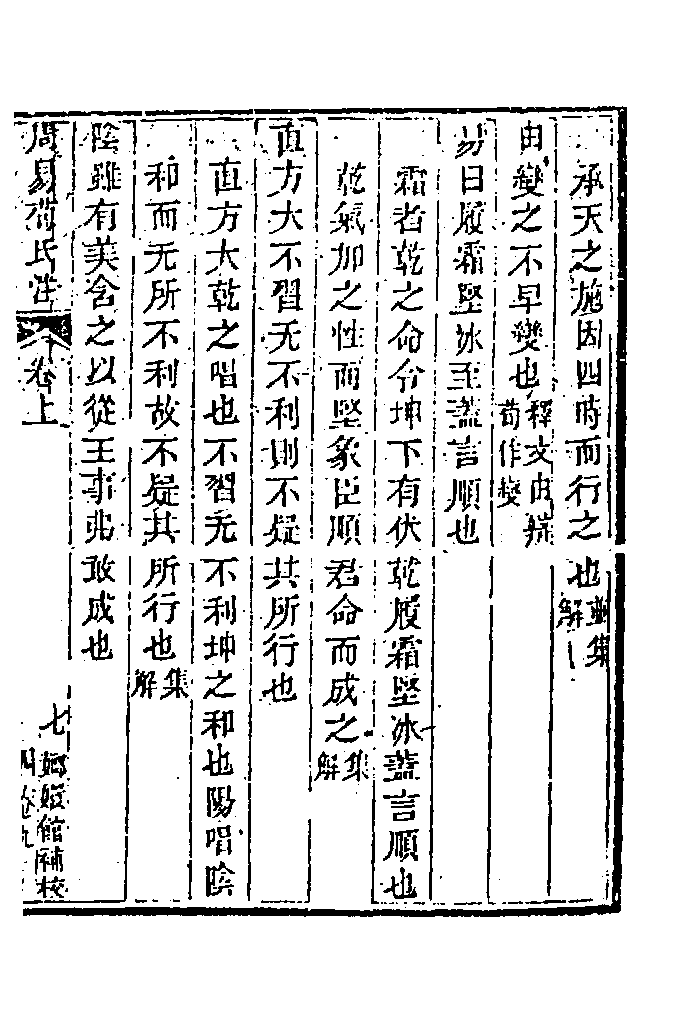 承天之施因四時而行之也並集解
由變之不早變也釋文由辨荀作變
易曰履霜堅冰至蓋言順也
霜者乾之命令坤下有伏乾履霜堅冰蓋言順也
乾氣加之性而堅象臣順君命而成之集解
直方大不習无不利則不疑其所行也
直方大乾之唱也不習无不利坤之和也陽唱陰
和而无所不利故不疑其所行也集解
陰雖有美含之以從王事弗敢成也
周易荀氏注 卷上 七 嫏嬛館補校